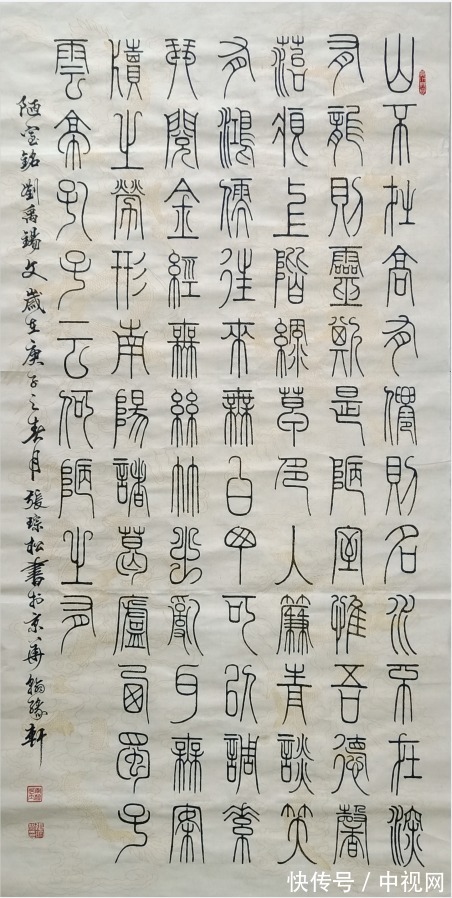 山不在高有僊則名水不在深
有龍則靈斯是陋室惟吾德馨
苔痕上階綠草色入簾青談笑
有鴻儒往來無白丁可以調素
琴閱金經無絲竹之亂耳無案
牘之勞形南陽諸葛廬西蜀子
雲亭孔子云何陋之有
陋室銘劉禹錫文歲在庚子之春月張琮松書於京華翰緣軒
快传号/中视网